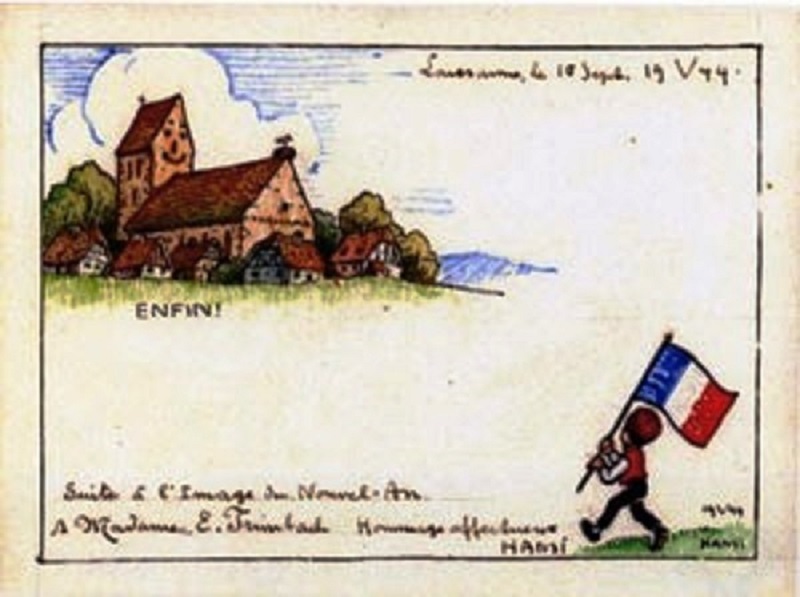 Lausanne, le 10 Sept. 19 V 44.
ENFIN!
Suite à l'Image du Nouvel-An.
A Madame E. Trimbach Hommage affectueux
HANSI
HANSI